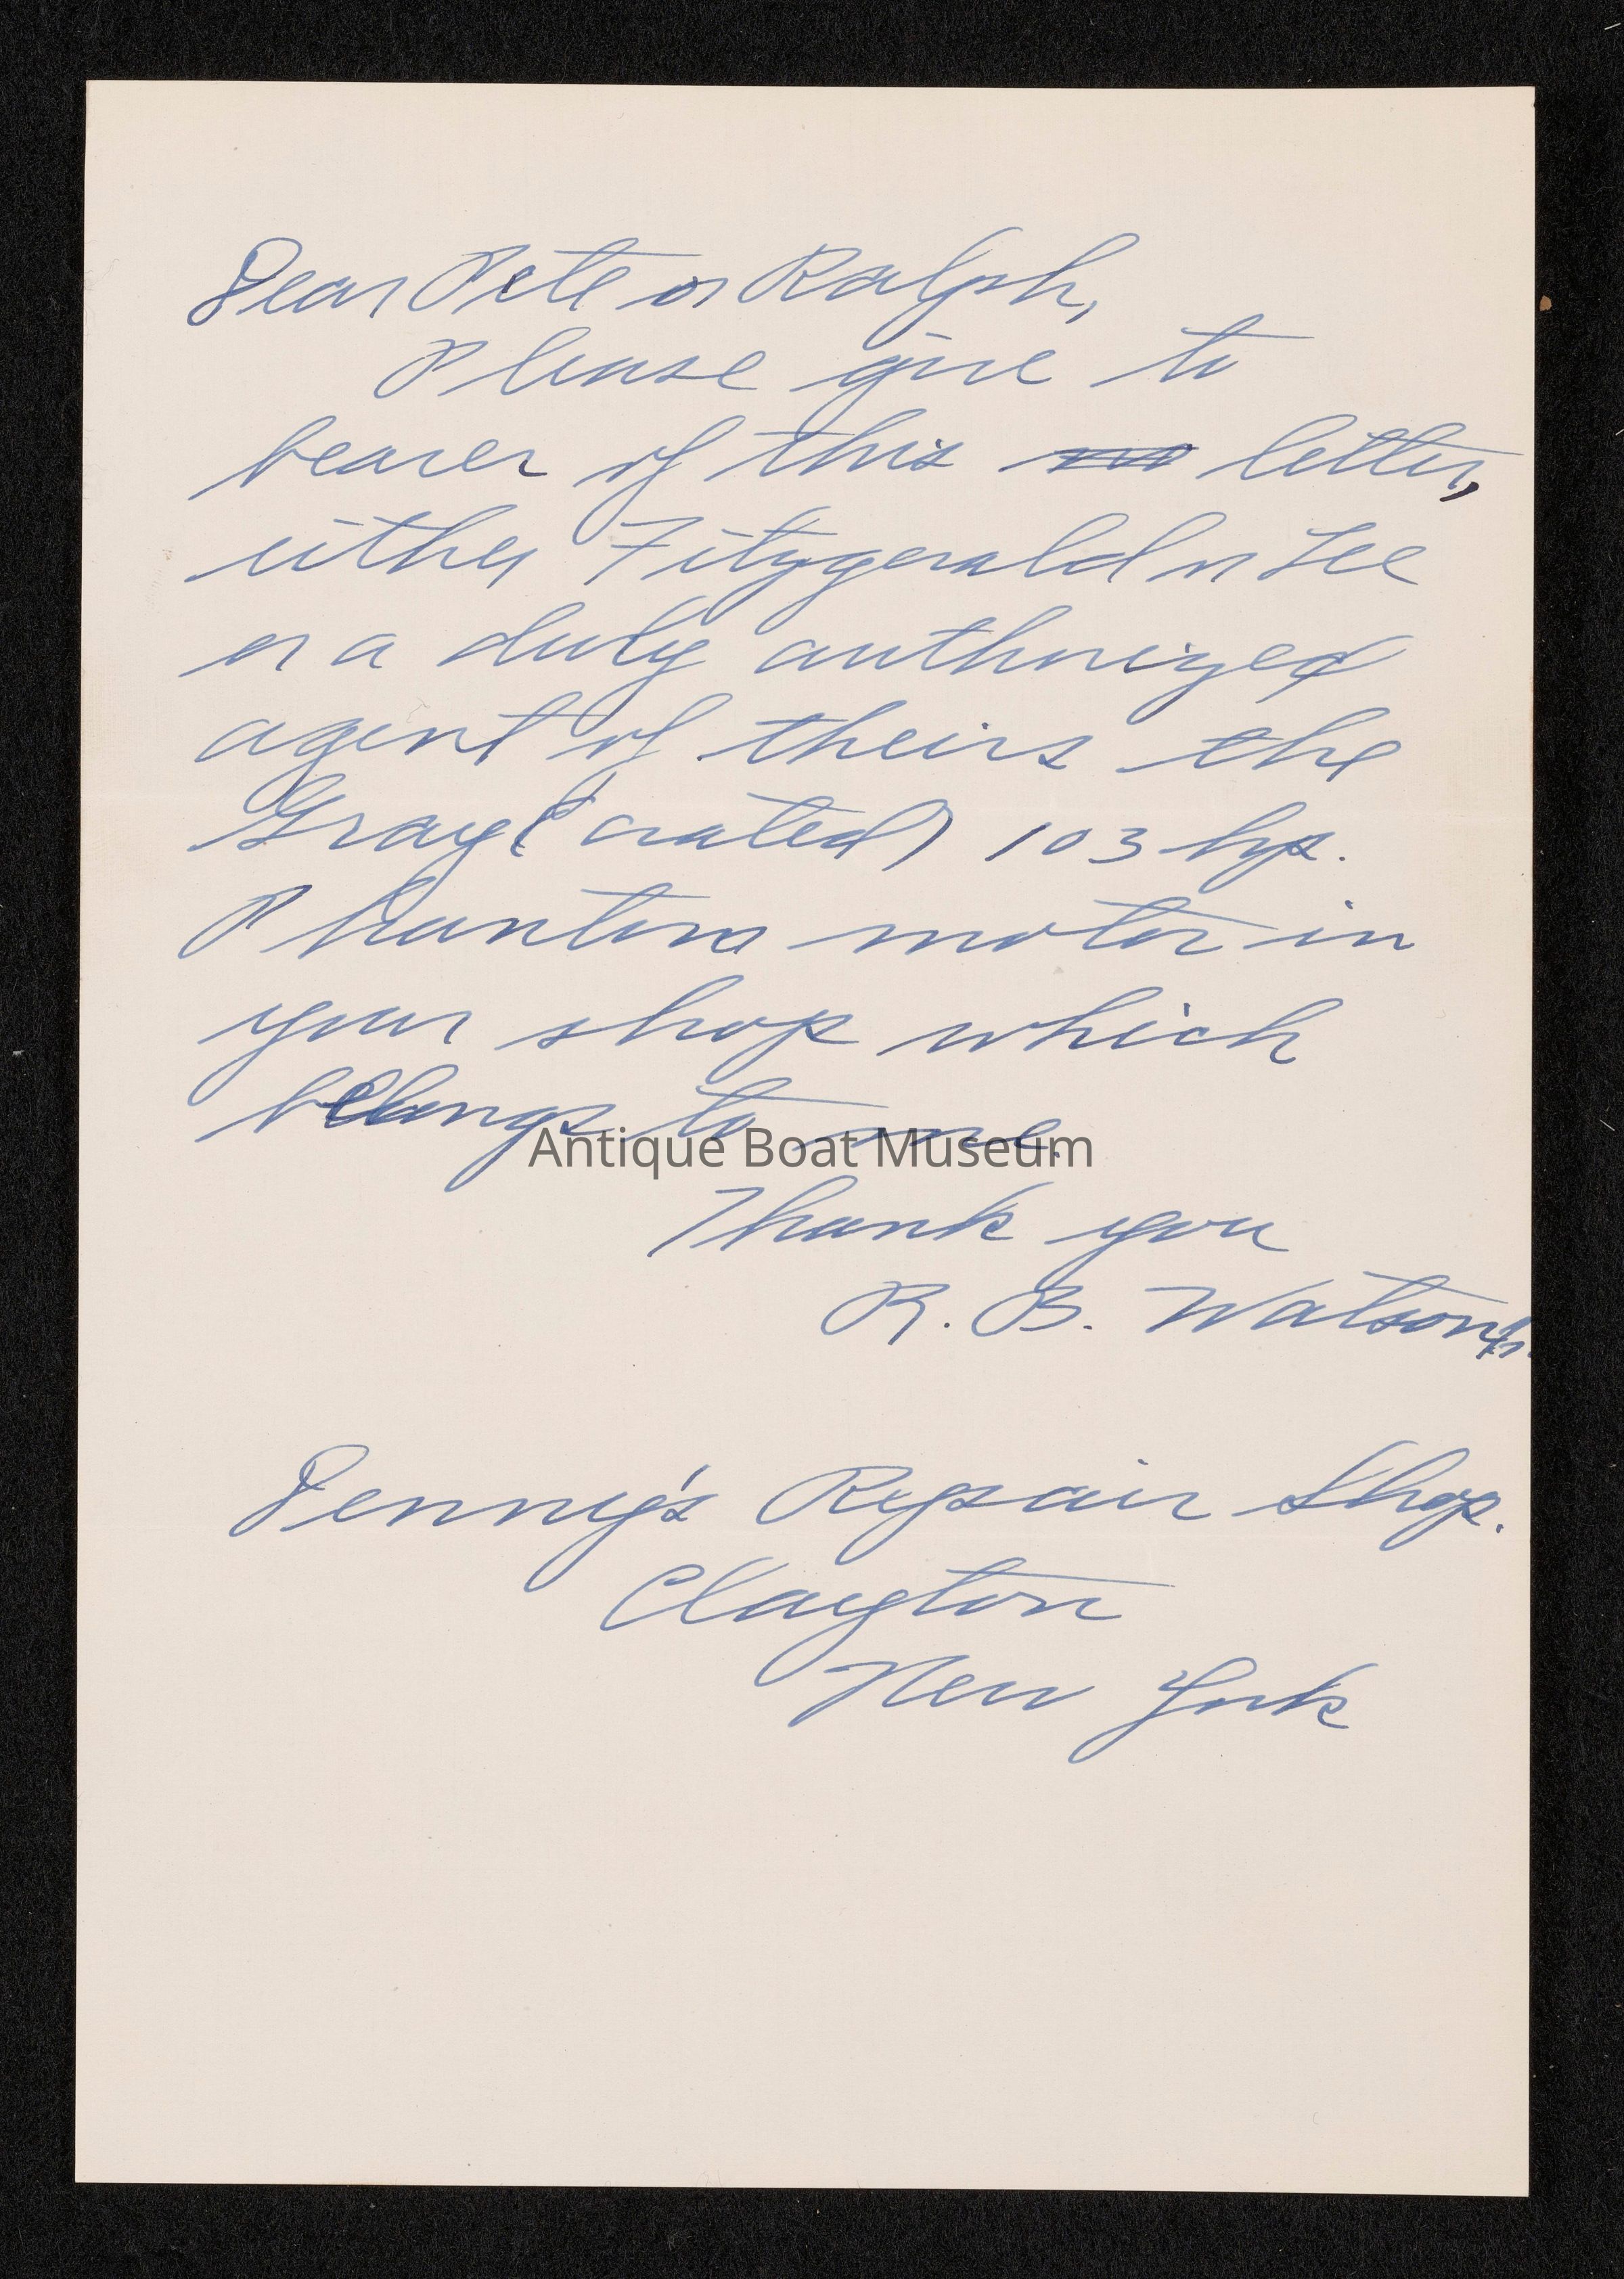 Dear Pete or Ralph,
Please give to
bearer of this letter,
either Fitzgerald or Lee
or a duly authorized
agent of theirs the
Gray (crated) 103 hp.
Phantom motor in
your shop which
belongs to me.
Antique Boat Museum
Thank you
R. B. Watson Jr.
Denny's Repair Shop.
Clayton
New York